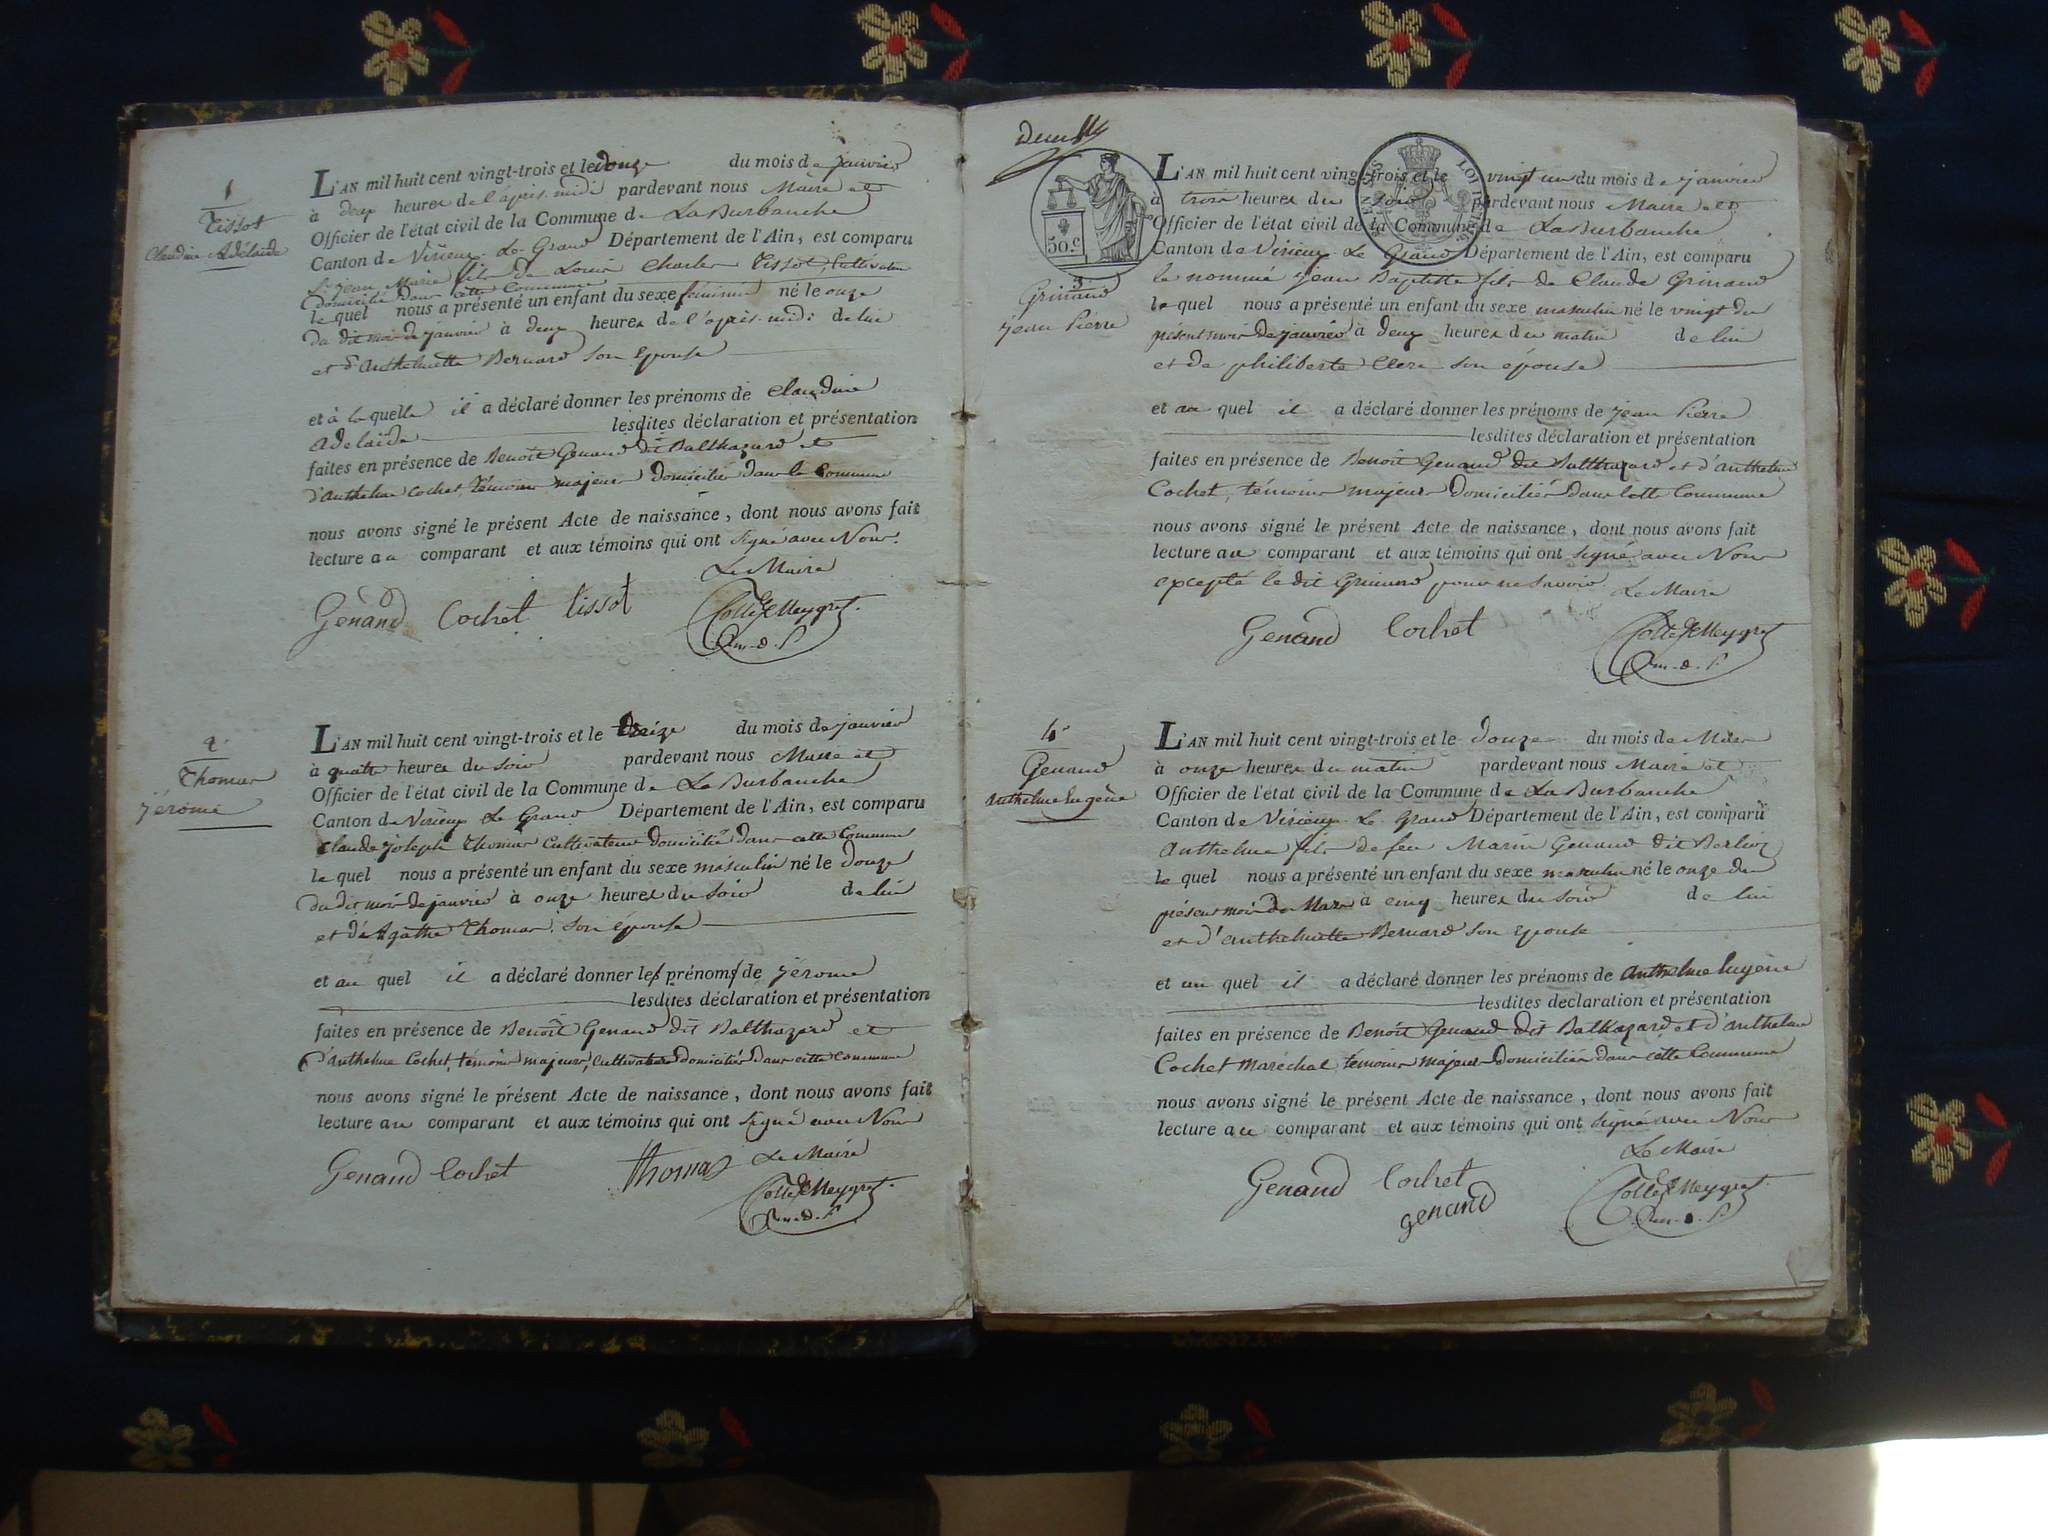 1
Tissot
Claudine Adélaïde
L'AN mil huit cent vingt-trois et le douze du mois de janvier
à deux heures de l'après-midi pardevant nous Maire et
Officier de l'état civil de la Commune de La Burbanche
Canton de Virieux Le Grand Département de l'Ain, est comparu
Sr Jean Marie fils de Louis Charles Tissot, Cultivateur
domicilié dans cette Commune
lequel nous a présenté un enfant du sexe féminin né le onze
du dit mois de janvier à deux heures de l'après-midi de lui
et d'Anthelmette Bernard son Epouse
et à laquelle il a déclaré donner les prénoms de Claudine
Adelaïde lesdites déclaration et présentation
faites en présence de Benoit Genand dit Balthazard et
d'Anthelme Cochet, témoins majeurs domiciliés dans la Commune
nous avons signé le présent Acte de naissance, dont nous avons fait
lecture au comparant et aux témoins qui ont signé avec Nous.
Le Maire
Genand Cochet tissot
2
Thomas
Jérome
L'AN mil huit cent vingt-trois et le treize du mois de janvier
à quatre heures du soir pardevant nous Maire et
Officier de l'état civil de la Commune de La Burbanche
Canton de Virieux Le Grand Département de l'Ain, est comparu
Claude joseph Thomas Cultivateur domicilié dans cette Commune
lequel nous a présenté un enfant du sexe masculin né le douze
du dit mois de janvier à onze heures du soir de lui
et d'Agathe Thomas son épouse
et au quel il a déclaré donner les prénoms de jérome
lesdites déclaration et présentation
faites en présence de Benoit Genand dit Balthazard et
d'Anthelme Cochet, témoins majeurs, cultivateurs domiciliés dans cette commune
nous avons signé le présent Acte de naissance, dont nous avons fait
lecture au comparant et aux témoins qui ont signé avec Nous
Le Maire
Genand Cochet thomas
50.c
3
Grinand
jean Pierre
L'AN mil huit cent vingt-trois et le vingt un du mois de janvier
à trois heures du soir pardevant nous Maire et
Officier de l'état civil de la Commune de La Burbanche
Canton de Virieux Le Grand Département de l'Ain, est comparu
le nommé jean Baptiste fils de Claude Grinand
lequel nous a présenté un enfant du sexe masculin né le vingt du
présent mois de janvier à deux heures du matin de lui
et de philiberte Clerc son épouse
et au quel il a déclaré donner les prénoms de jean Pierre
lesdites déclaration et présentation
faites en présence de Benoit Genand dit Balthazard et d'Anthelme
Cochet, témoins majeurs domiciliés dans cette Commune
nous avons signé le présent Acte de naissance, dont nous avons fait
lecture au comparant et aux témoins qui ont signé avec Nous
excepté le dit Grinand pour ne savoir. Le Maire
Genand Cochet
4
Genand
Anthelme Eugène
L'AN mil huit cent vingt-trois et le douze du mois de Mars
à onze heures du matin pardevant nous Maire et
Officier de l'état civil de la Commune de La Burbanche
Canton de Virieux Le Grand Département de l'Ain, est comparu
Anthelme fils de feu Marin Genand dit Berlioz
lequel nous a présenté un enfant du sexe masculin né le onze du
présent mois de Mars à cinq heures du soir de lui
et d'Anthelmette Bernard son Epouse
et au quel il a déclaré donner les prénoms de Anthelme Eugène
lesdites declaration et présentation
faites en présence de Benoit Genand dit Balthazard et d'Anthelme
Cochet Maréchal, témoins majeurs domiciliés dans cette Commune
nous avons signé le présent Acte de naissance, dont nous avons fait
lecture au comparant et aux témoins qui ont signé avec Nous
Le Maire
Genand Cochet
genand